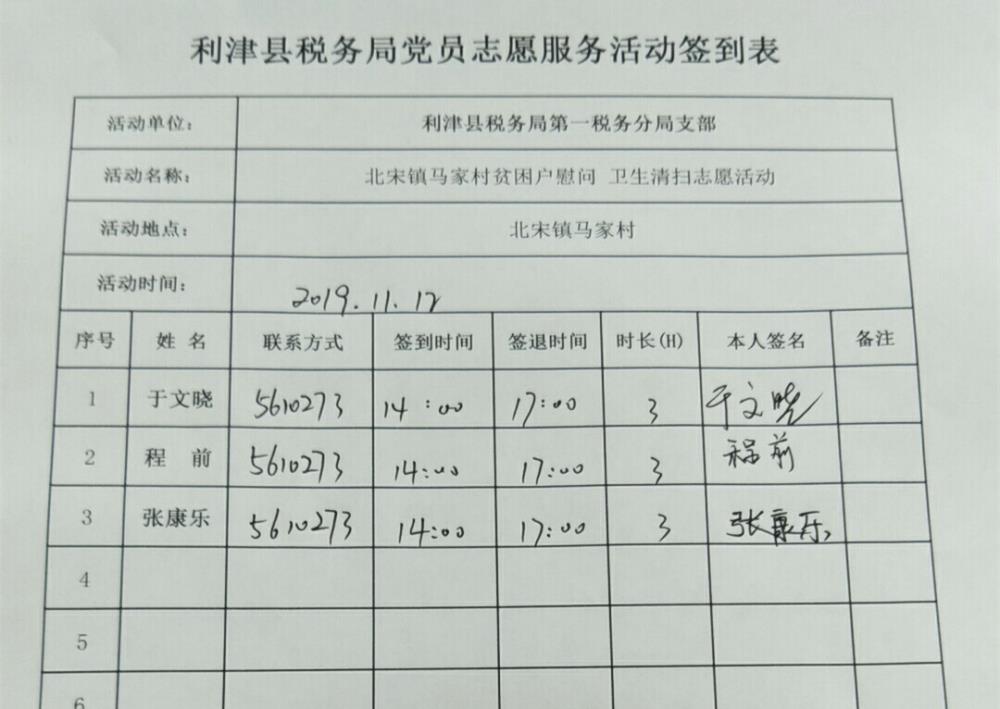 利津县税务局党员志愿服务活动签到表
活动单位： 利津县税务局第一税务分局支部
活动名称： 北宋镇马家村贫困户慰问 卫生清扫志愿活动
活动地点： 北宋镇马家村
活动时间： 2019.11.12
序号 姓名 联系方式 签到时间 签退时间 时长(H) 本人签名 备注
1 于文晓 5610273 14:00 17:00 3 于文晓
2 程 前 5610273 14:00 17:00 3 程前
3 张康乐 5610273 14:00 17:00 3 张康乐
4
5
6